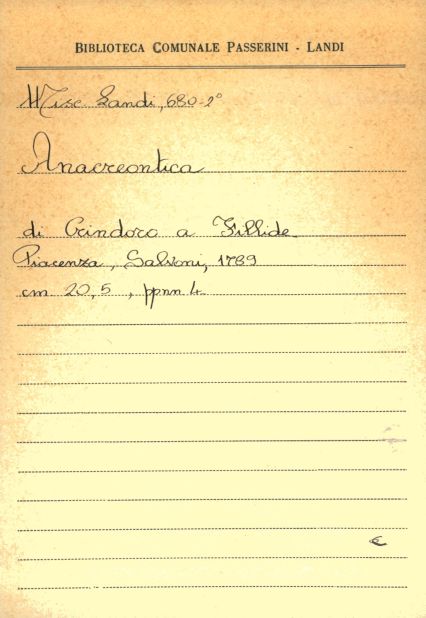 BIBLIOTECA COMUNALE PASSERINI - LANDI
Misc Landi, 680-2°
Anacreontica
di Crindoro a Fillide
Piacenza, Salvoni, 1789
cm 20,5, ppnn 4